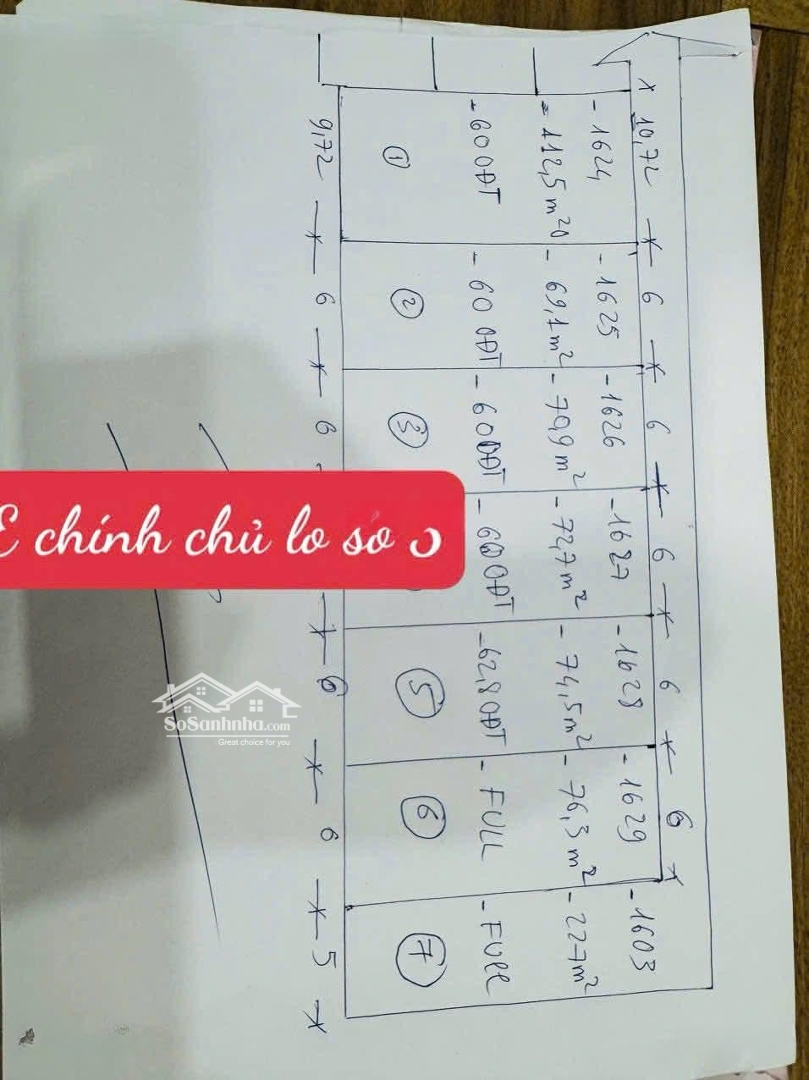 x 10,72 x 6 x 6 x 6 x 6 x 6 x
- 1624
- 112,5 m²
- 60 ODT
①
- 1625
- 69,1 m²
- 60 ODT
②
- 1626
- 70,9 m²
- 60 ODT
③
- 1627
- 72,7 m²
- 60 ODT
- 1628
- 74,5 m²
- 62,8 ODT
⑤
- 1629
- 76,3 m²
- FULL
⑥
- 1603
- 227 m²
- FULL
⑦
9,72 x 6 x 6
x 6 x 6 x 5 x
chính chủ lo sổ
SoSanhnha.com
Great choice for you